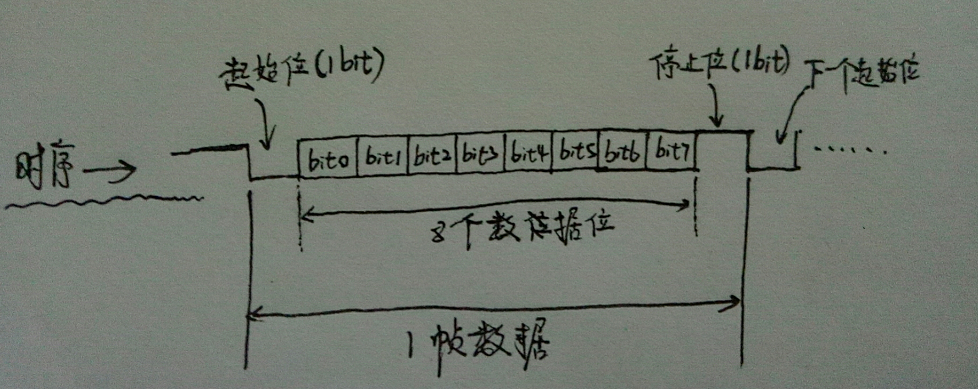 起始位(1bit)
停止位(1bit)
下一个起始位
时序
bit0 bit1 bit2 bit3 bit4 bit5 bit6 bit7
......
8个数据位
1帧数据